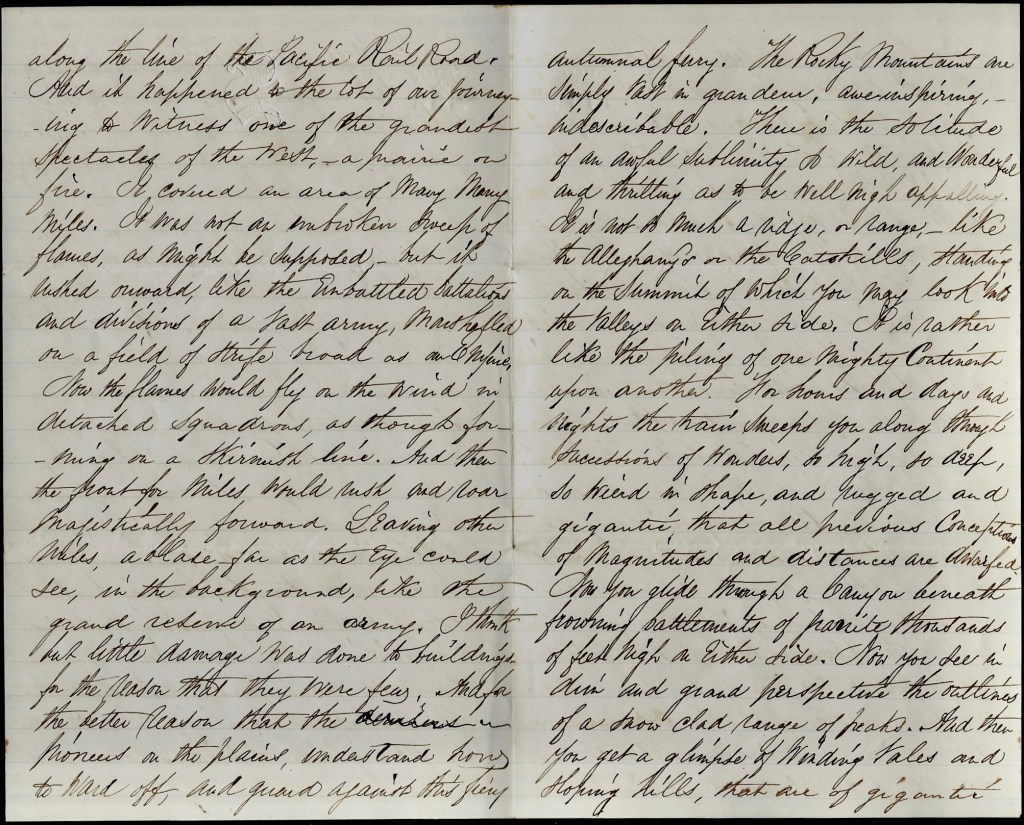 along the line of the Pacific Rail Road.
And it happened to the lot of our journey-
-ing to witness one of the grandest
spectacles of the West, - a prairie on
fire. It covered an area of many many
miles. It was not an unbroken sweep of
flames, as might be supposed, - but it
rushed onward, like the embattled battalions
and divisions of a vast army, marshalled
on a field of strife broad as an Empire,
Now the flames would fly on the wind in
detached squadrons, as though for-
-ming on a skirmish line. And then
the front for miles, would rush and roar
majistically forward. Leaving other
miles, ablaze far as the Eye could
see, in the background, like the
grand reserve of an army. I think
but little damage was done to buildings
for the reason that they were few, And for
the better reason that the
pioneers on the plains, understand how
to ward off, and guard against this fiery
autumnal fury. The Rocky Mountains are
simply vast in grandeur, awe-inspiring, -
indescribable. There is the solitude
of an awful sublimity so wild, and wonderful
and thrilling as to be well nigh appalling.
It is not so much a ridge, or range, - like
the Alleghanys or the Catskills, standing
on the summit of which you may look into
the valleys on Either side. It is rather
like the piling of one mighty Continent
upon another. For hours and days and
nights the train sweeps you along through
successions of wonders, so high, so deep,
so wierd in shape, and rugged and
gigantic that all previous Conceptions
of magnitudes and distances are dwarfed.
Now you glide through a Canyon beneath
frowning battlements of granite thousands
of feet high on Either side. Now you see in
dim and grand perspective the outlines
of a snow clad range of peaks. And then
you get a glimpse of winding vales and
sloping hills, that are of gigantic